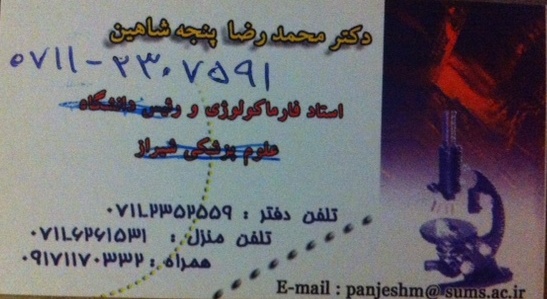 دکتر محمد رضا پنجه شاهین
۰۷۱۱-۲۳۰۷۵۹۱
استاد فارماکولوژی و رئیس دانشگاه
علوم پزشکی شیراز
تلفن دفتر : ۰۷۱۱۲۳۵۲۵۵۹
تلفن منزل : ۰۷۱۱۶۲۶۱۵۳۱
همراه : ۰۹۱۷۱۱۷۰۳۳۲
E-mail : panjeshm@sums.ac.ir